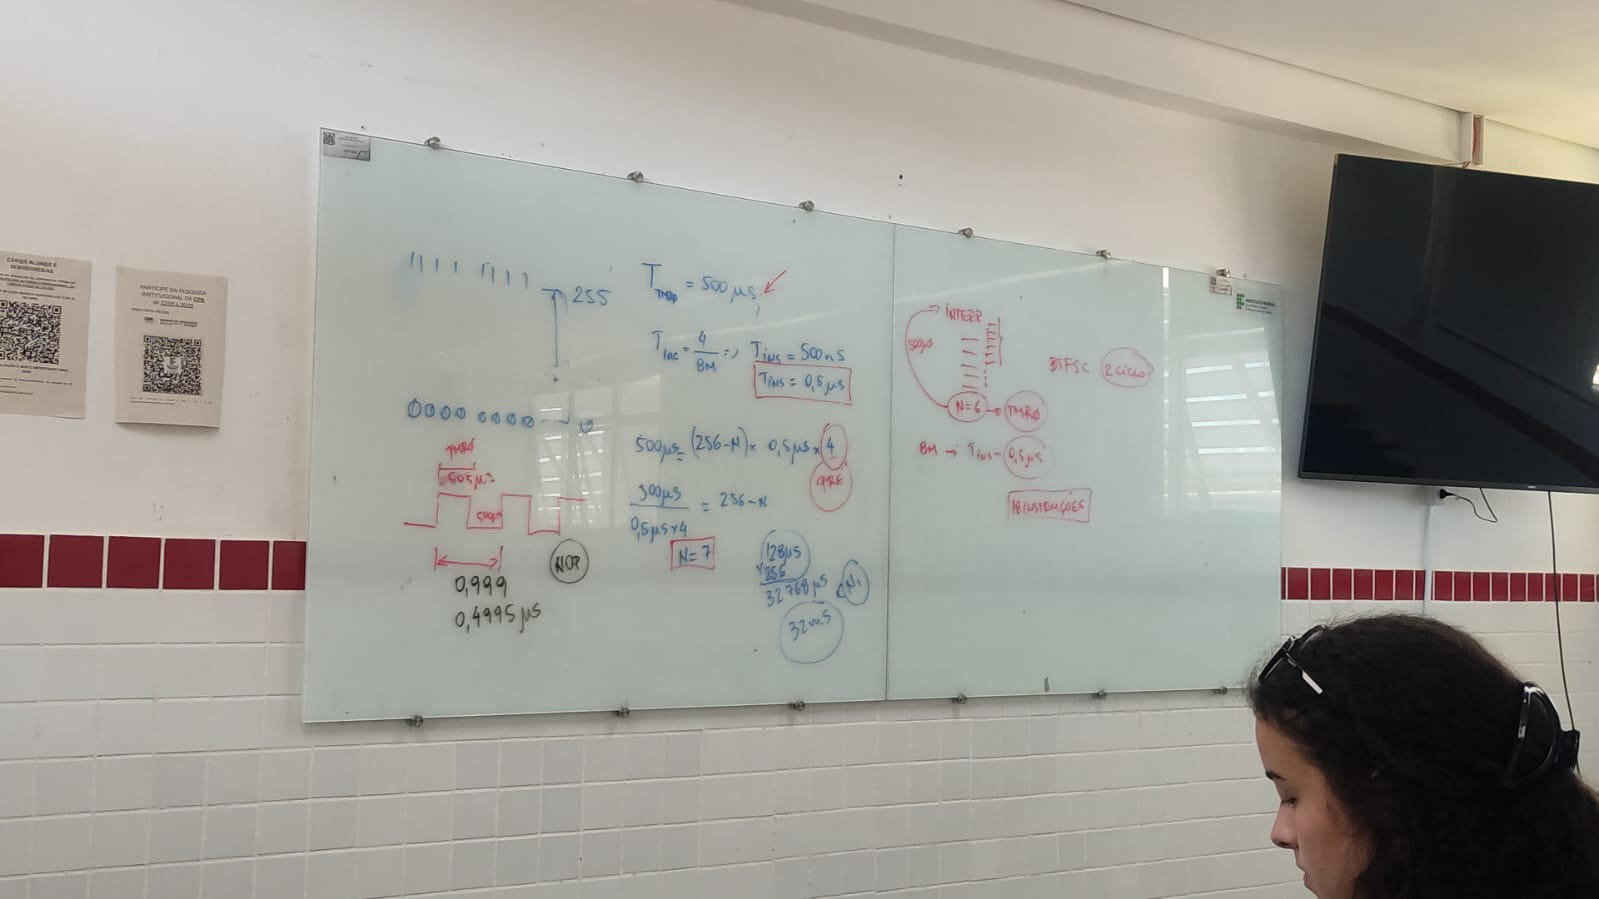 CAR@S ALUN@S E
SERVIDORES/AS
PARTICIPE DA PESQUISA
INSTITUCIONAL DA CPA
1111 1111
255
0000 0000
TMR0
505µs
500µ
0,999
0,4995µs
NOP
T TMR0 = 500µs
= 4/8M => Tins = 500ns
Tins = 0,5µs
500µs = (256-N) × 0,5µs × 4
PRE
500µs
0,5µs×4
= 256-N
N=7
128µs
256
32768µs
32ms
INTERR
500µs
N=6 → TMR0
8M → Tins = 0,5µs
BTFSC
2 ciclo
18 INSTRUÇÕES
INSTITUTO FEDERAL